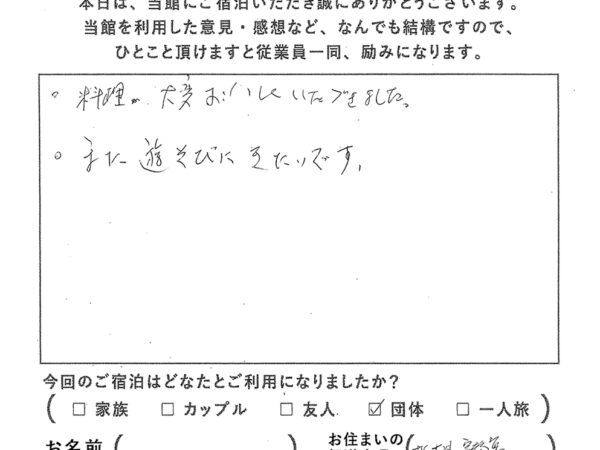 本日は、当館にご宿泊いただき誠にありがとうございます。
当館を利用した意見・感想など、なんでも結構ですので、
ひとこと頂けますと従業員一同、励みになります。
○ 料理が大変おいしくいただきました。
○ また遊そびにきたいです。
今回のご宿泊はどなたとご利用になりましたか?
( □ 家族 □ カップル □ 友人 ☑ 団体 □ 一人旅 )
お名前 ( ) お住まいの (